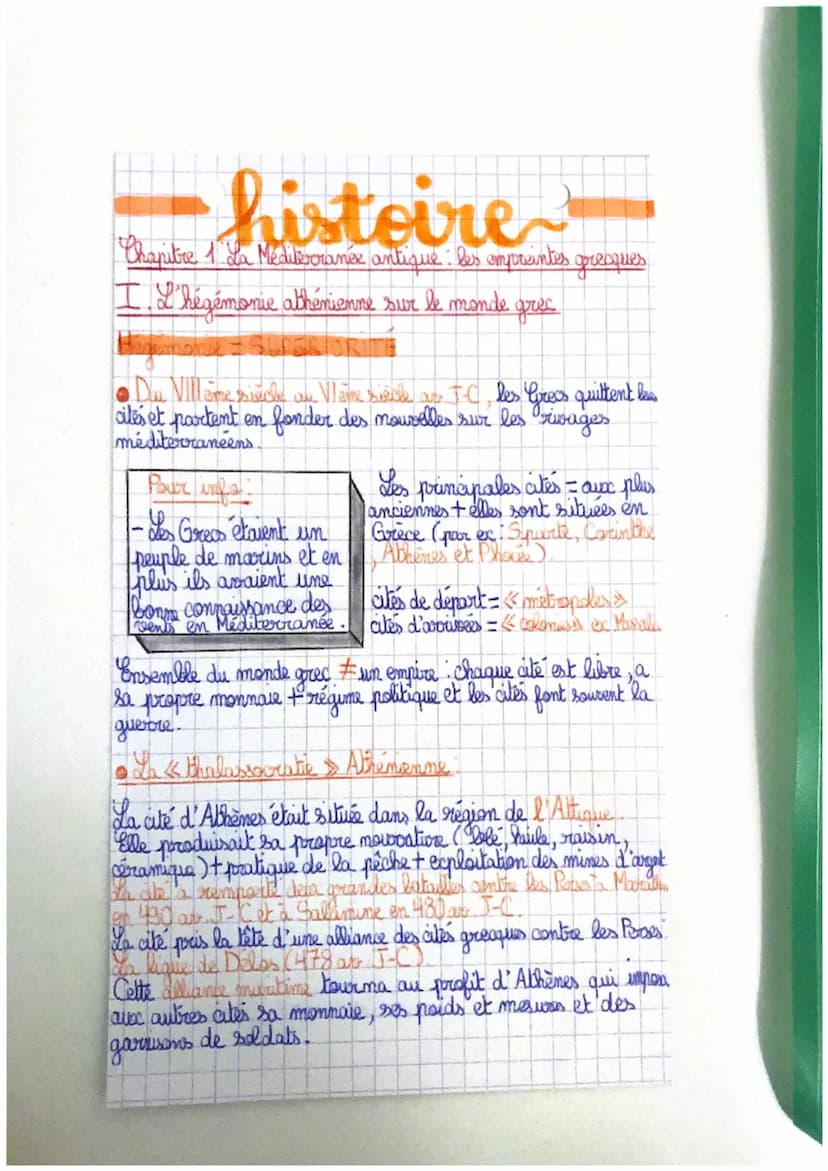 histoire
Chapitre 1 La Méditerranée antique : les empreintes grecques
I. L'hégémonie athénienne sur le monde grec
Hégémonie = SUPÉRIORITÉ
Du VIIIème siècle au VIème siècle av J-C, les Grecs quittent leurs
cités et partent en fonder des nouvelles sur les rivages
méditerranéens.
Pour info :
- Les Grecs étaient un
peuple de marins et en
plus ils avaient une
bonne connaissance des
vents en Méditerranée.
Les principales cités = aux plus
anciennes + elles sont situées en
Grèce (par ex : Sparte, Corinthe
, Athènes et Phocée)
cités de départ = « métropoles »
cités d'arrivées = « colonies » ex Massalia
Ensemble du monde grec ≠ un empire : chaque cité est libre, a
sa propre monnaie + régime politique et les cités font souvent la
guerre.
La « thalassocratie » Athénienne
La cité d'Athènes était située dans la région de l'Attique.
Elle produisait sa propre nourriture (blé, huile, raisin,
céramique) + pratique de la pêche + exploitation des mines d'argent
La cité a remporté deux grandes batailles contre les Perses à Marathon
en 490 av J-C et à Salamine en 480 av J-C.
La cité pris la tête d'une alliance des cités grecques contre les Perses :
La ligue de Délos (478 av J-C)
Cette alliance maritime tourna au profit d'Athènes qui imposa
aux autres cités sa monnaie, ses poids et mesures et des
garnisons de soldats.